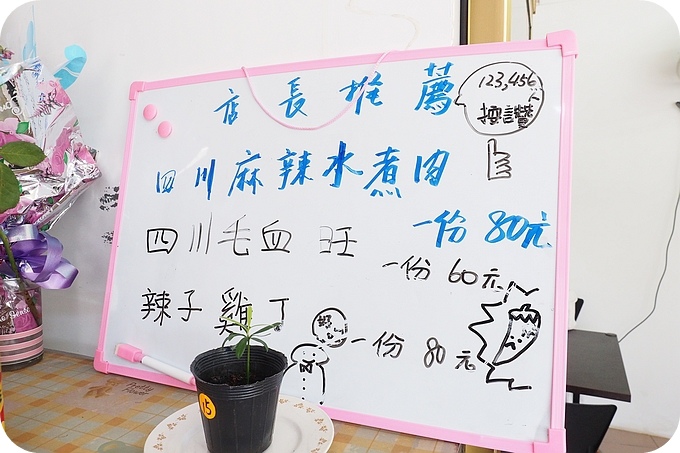 店長推薦
123,456人
按讚
四川麻辣水煮肉
一份 80元
四川毛血旺
一份 60元
辣子雞丁
一份 80元
15